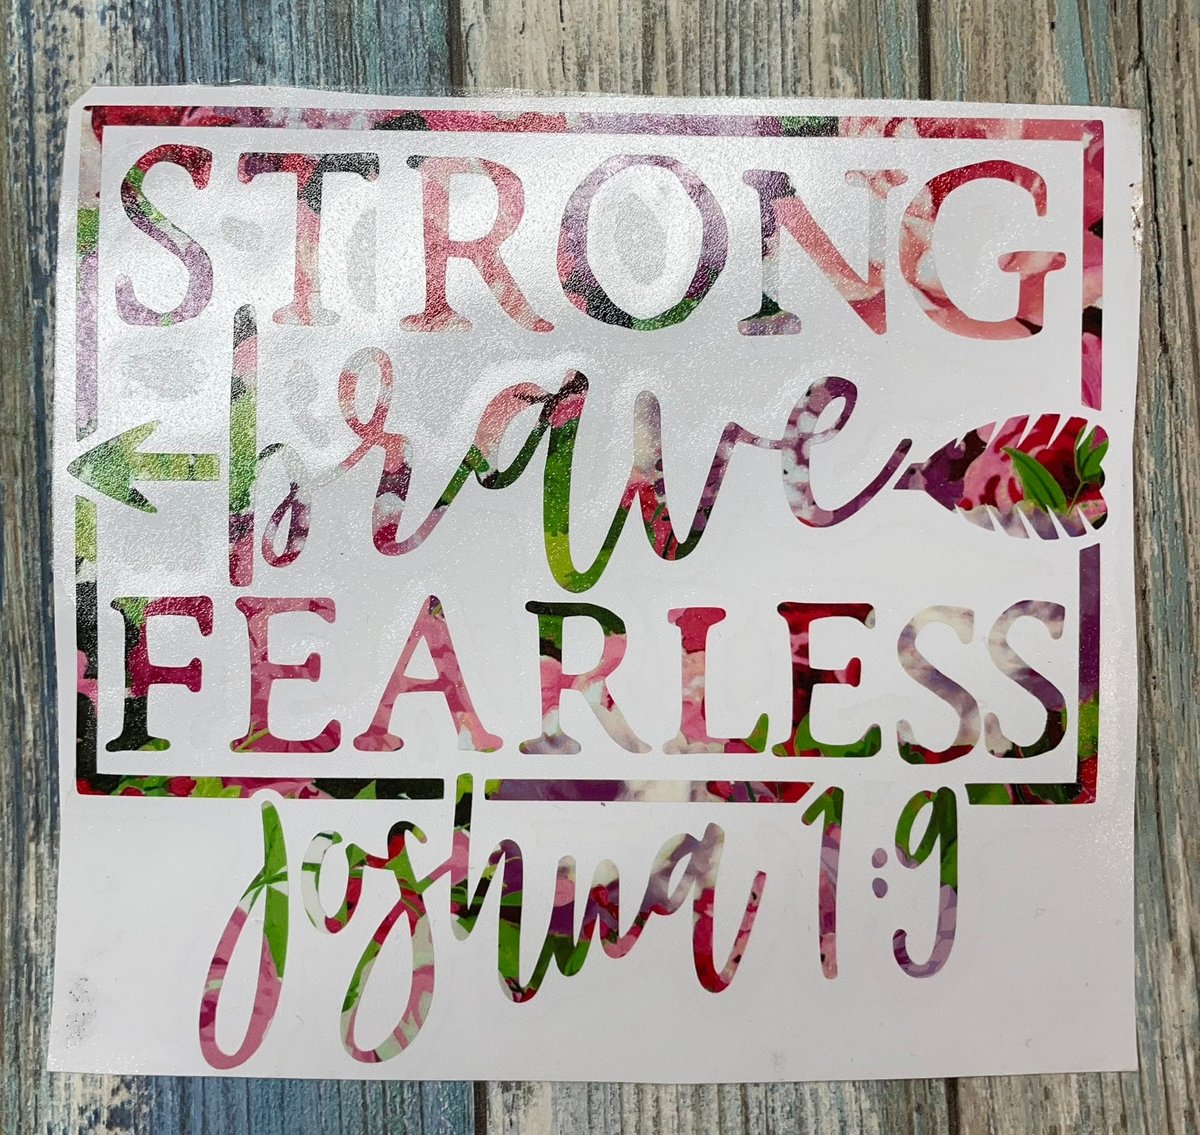 STRONG
brave
FEARLESS
Joshua 1:9